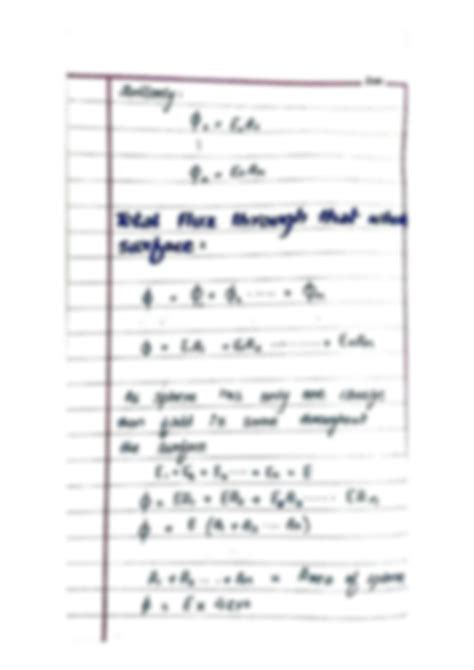 Similarly:
Φ₂ = E₂A₂
⋮
Φₙ = EₙAₙ
Total flux through that whole
surface.
Φ = Φ₁ + Φ₂ ..... + Φₙ
Φ = E₁A₁ + E₂A₂ ......... + EₙAₙ
As sphere has only one charge
then field is same throughout
the surface
E₁ = E₂ = E₃ ... = Eₙ = E
Φ = EA₁ + EA₂ + ..... EAₙ
Φ = E (A₁ + A₂ ... Aₙ)
A₁ + A₂ ... + Aₙ = Area of sphere
Φ = E ×